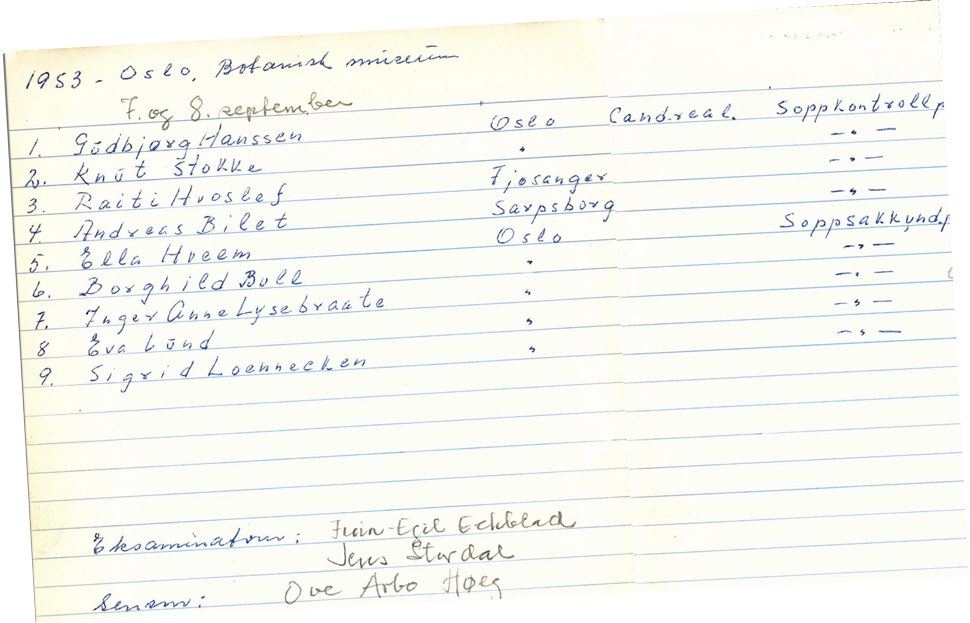 1953 - Oslo, Botanisk museum
7. og 8. september
1. Gudbjørg Hanssen Oslo Cand.real. Soppkontrollp
2. Knut Stokke " -"-
3. Raiti Hvoslef Fjøsanger -"-
4. Andreas Bilet Sarpsborg -"-
5. Ella Hveem Oslo Soppsakkynd
6. Borghild Bull " -"-
7. Inger Anne Lysebraate " -"-
8 Eva Lund " -"-
9. Sigrid Loennecken " -"-
Eksaminatorer: Finn-Egil Eckblad
Jens Stordal
Sensor: Ove Arbo Høeg